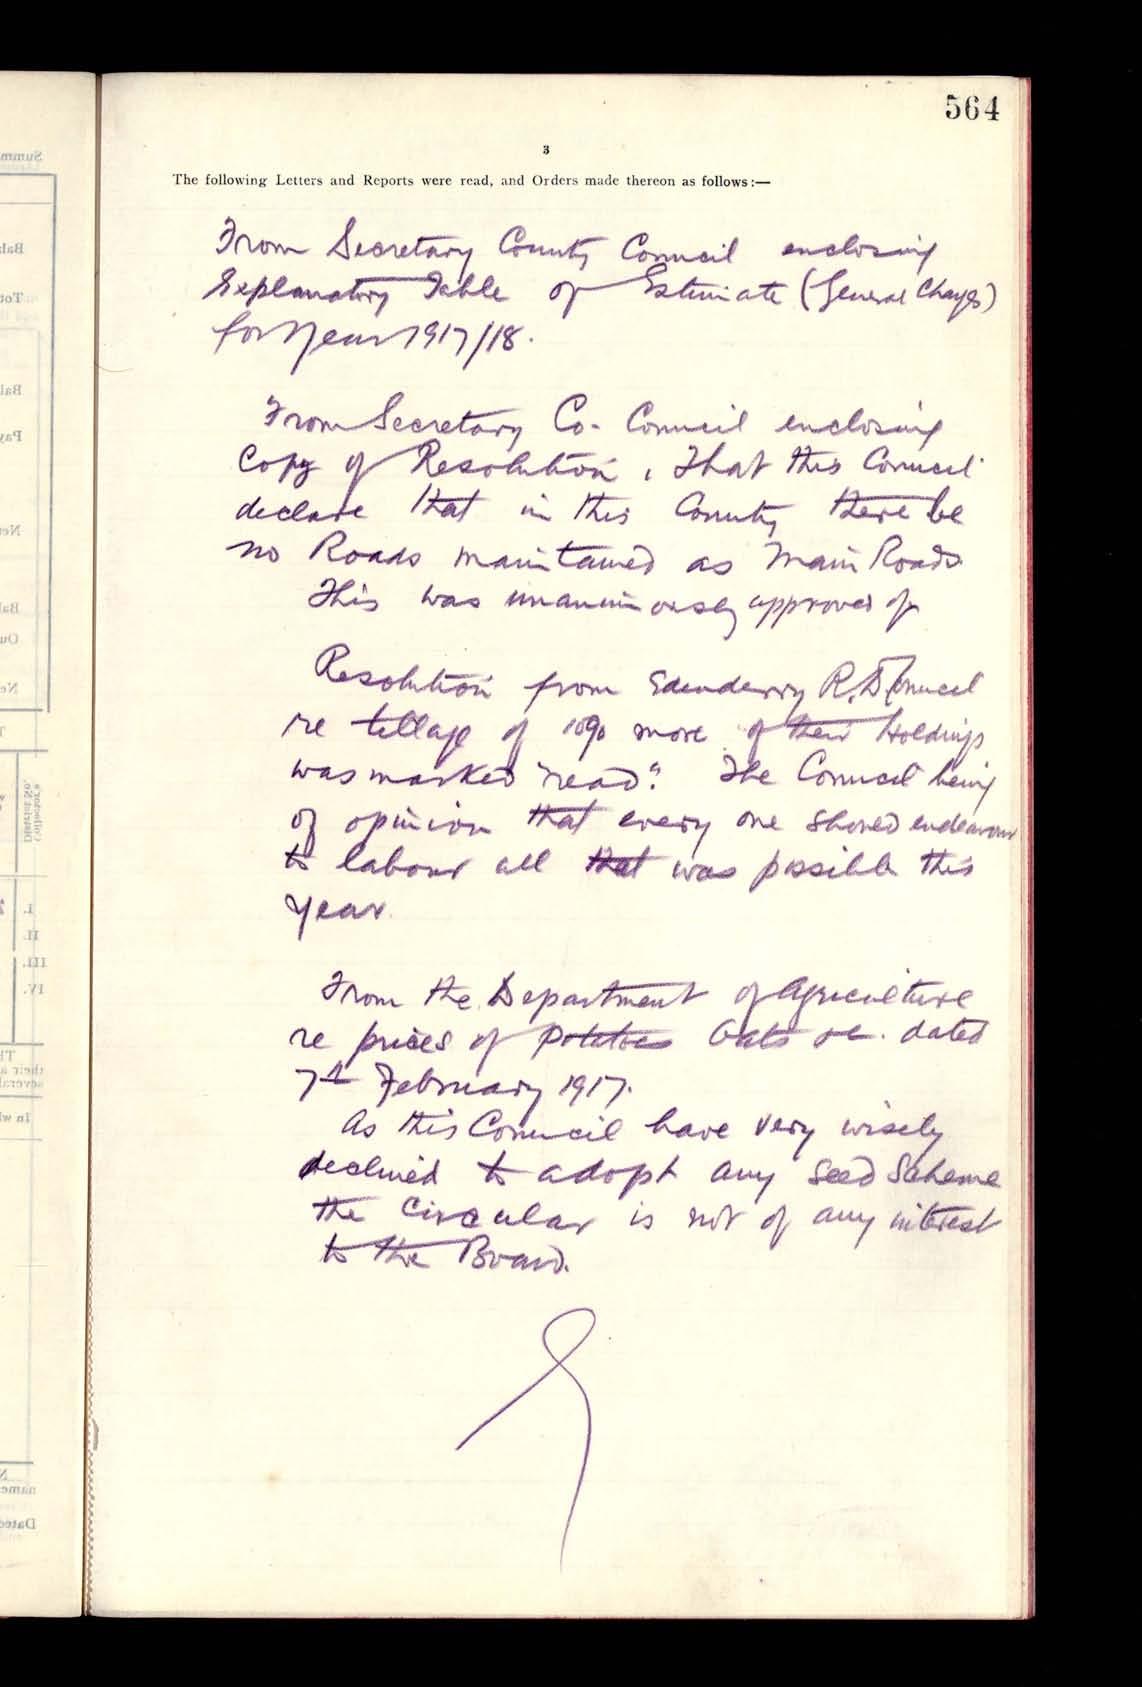 564
3
The following Letters and Reports were read, and Orders made thereon as follows:—
From Secretary County Council enclosing
Explanatory Table of Estimate (General Charges)
for Year 1917/18.
From Secretary Co. Council enclosing
copy of Resolution, That this Council
declare that in this County there be
no Roads maintained as Main Roads.
This was unanimously approved of
Resolution from Edenderry R. D. Council
re tillage of 10% more of their Holdings
was marked "read". The Council being
of opinion that every one should endeavour
to labour all that was possible this
year.
From the Department of Agriculture
re prices of Potatoes Oats &c. dated
7th February 1917.
As this Council have very wisely
declined to adopt any Seed Scheme
the Circular is not of any interest
to the Board.